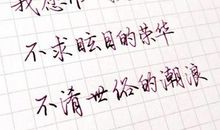 我愿作
不求眩目的荣华
不淆世俗的潮浪